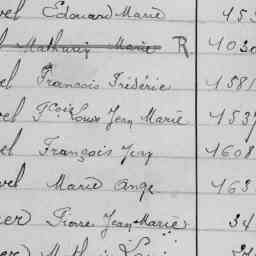 vel Edouard Marie 453
Mathurin Marie R 4030
el François Frédéric 4581
vel Fçois Louis Jean Marie 4537
vel François Jean 4608
vel Marie Ange 463
er Pierre Jean Marie 34
er) Mathurin Louis